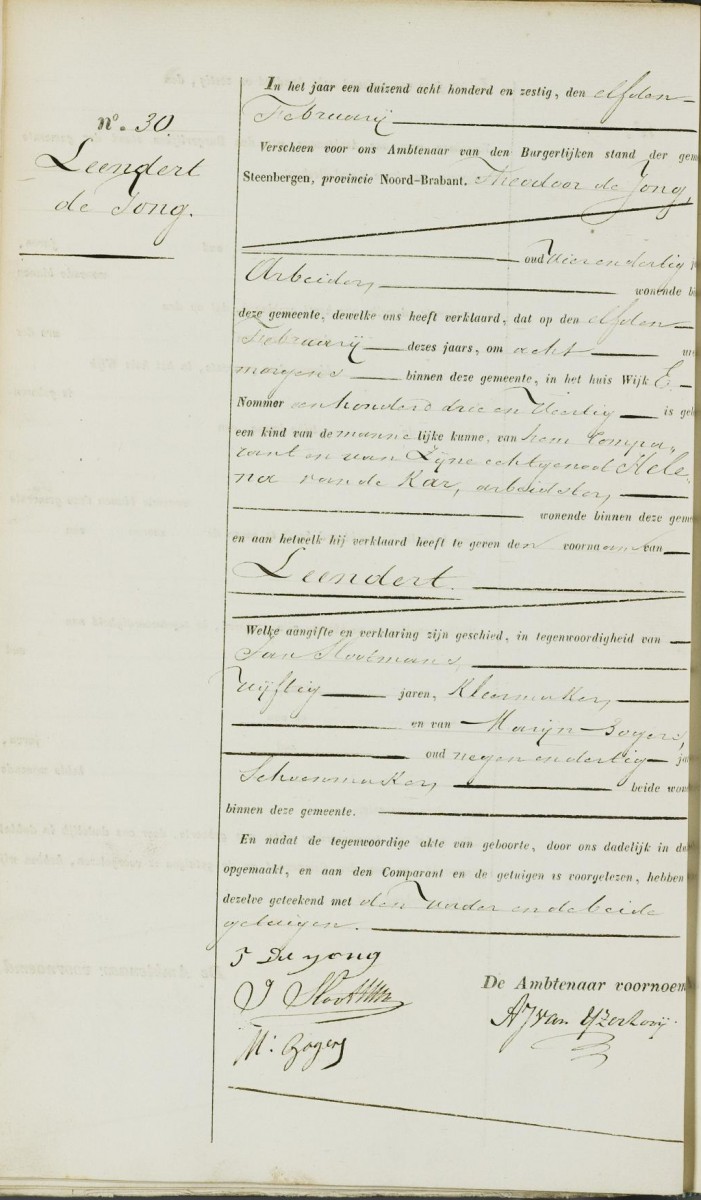 nº. 30.
Leendert
de Jong.
In het jaar een duizend acht honderd en zestig, den elfden
Februarij
Verscheen voor ons Ambtenaar van den Burgerlijken stand der gem
Steenbergen, provincie Noord-Brabant. Theodoor de Jong,
oud vierendertig
Arbeider, wonende bi
deze gemeente, dewelke ons heeft verklaard, dat op den elfden
Februarij dezes jaars, om acht uu
morgens binnen deze gemeente, in het huis Wijk E
Nommer een honderd drie en Veertig is geb
een kind van de mannelijke kunne, van hem Compa-
rant en van Zijne echtgenoot Hele-
na van de Kar, arbeidster,
wonende binnen deze geme
en aan hetwelk hij verklaard heeft te geven den voornaam van
Leendert.
Welke aangifte en verklaring zijn geschied, in tegenwoordigheid van
Jan Slootmans,
Vijftig jaren, Kleermaker,
en van Marijn Bogers,
oud negenendertig ja
Schoenmaker, beide won
binnen deze gemeente.
En nadat de tegenwoordige akte van geboorte, door ons dadelijk in du
opgemaakt, en aan den Comparant en de getuigen is voorgelezen, hebben
dezelve geteekend met den Vader en de beide
getuigen.
T De Jong
De Ambtenaar voornoem
J Slootmans
M: Bogers